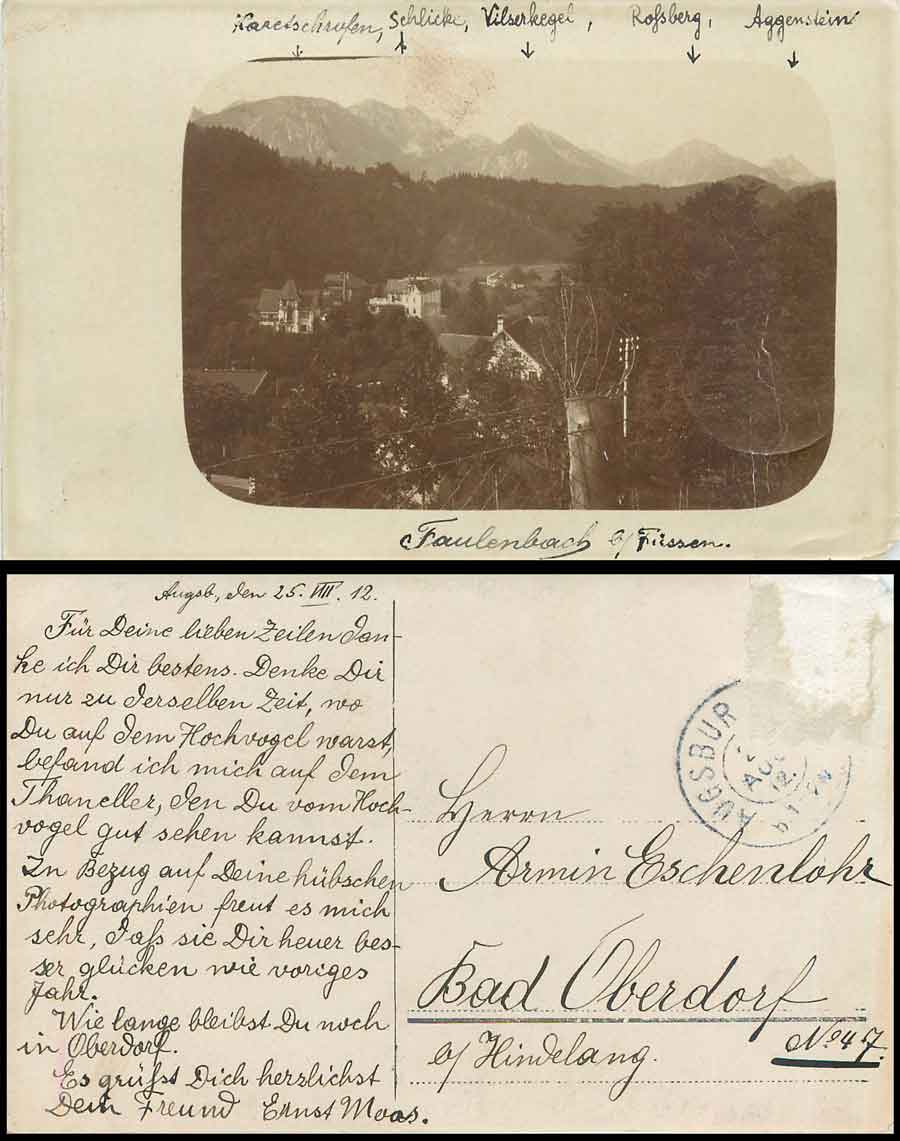 Karetschrofen, Schlicke, Vilserkegel, Roßberg, Aggenstein
Faulenbach b/ Füssen.
Augsb., den 25. VIII. 12.
Für Deine lieben Zeilen dan-
ke ich Dir bestens. Denke Dir
nur zu derselben Zeit, wo
Du auf dem Hochvogel warst,
befand ich mich auf dem
Thaneller, den Du vom Hoch-
vogel gut sehen kannst.
In Bezug auf Deine hübschen
Photographien freut es mich
sehr, daß sie Dir heuer bes-
ser glücken wie voriges
Jahr.
Wie lange bleibst Du noch
in Oberdorf.
Es grüßt Dich herzlichst
Dein Freund Ernst Moos.
AUGSBURG
AUG
12.
Herrn
Armin Eschenlohr
Bad Oberdorf
b/ Hindelang.
No 47.